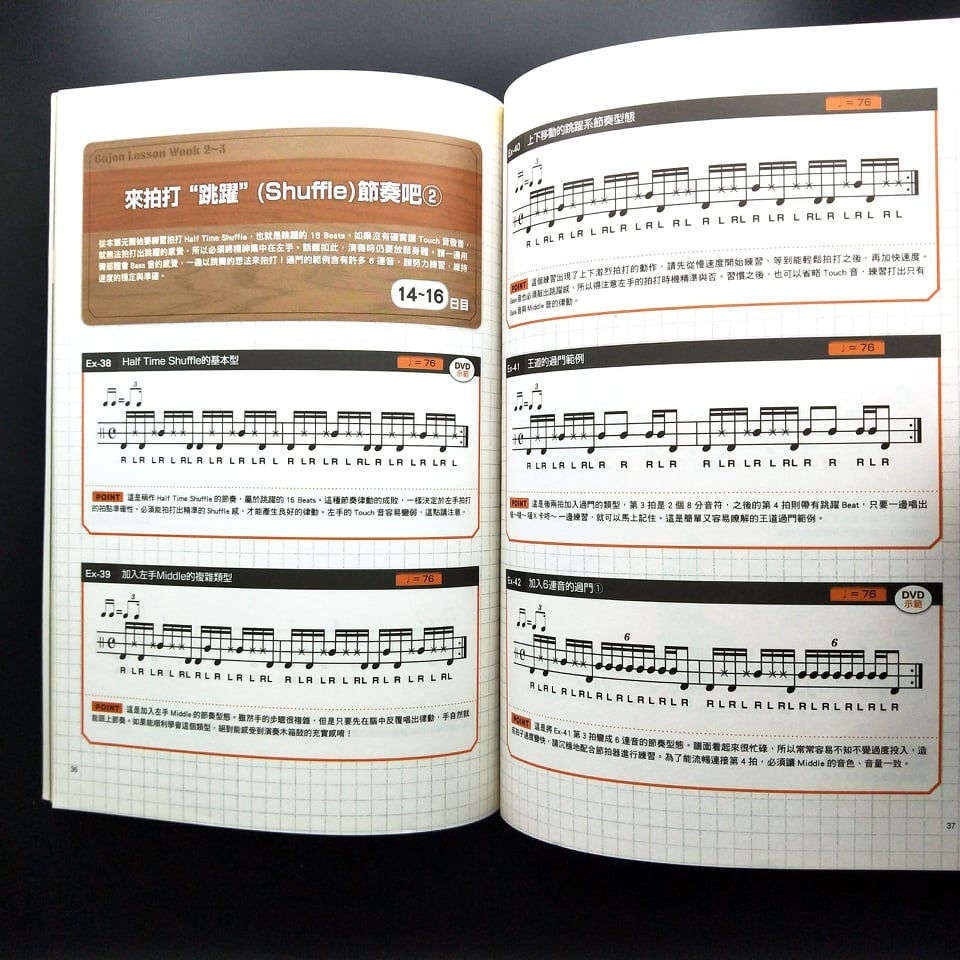 Cajon Lesson Week 2~3
來拍打“跳躍”(Shuffle)節奏吧②
從本單元開始要練習拍打 Half Time Shuffle，也就是跳躍的 16 Beats。如果沒有確實讓 Touch 音發音，
就無法拍打出跳躍的感覺，所以必須將精神集中在左手。話雖如此，演奏時仍要放鬆身體。請一邊用
臀部體會 Bass 音的感覺，一邊以跳舞的想法來拍打！過門的範例含有許多 6 連音，請努力練習，維持
速度的穩定與準確。
14~16日目
Ex-38 Half Time Shuffle的基本型 ♩=76 DVD示範
3
R L R L R L R L R L R L R L R L R L R L R L R L R L R L R L R L
POINT 這是稱作 Half Time Shuffle 的節奏，屬於跳躍的 16 Beats。這種節奏律動的成敗，一樣決定於左手拍打
的拍點準確性。必須能拍打出精準的 Shuffle 感，才能產生良好的律動。左手的 Touch 音容易變弱，這點請注意。
Ex-39 加入左手Middle的複雜類型 ♩=76
3
R L R L R L R L R L R L R L R L R L R L R L R L R L R L R L R L
POINT 這是加入左手 Middle 的節奏型態。雖然手的步驟很複雜，但是只要先在腦中反覆唱出律動，手自然就
能跟上節奏。如果能順利學會這個類型，絕對能感受到演奏木箱鼓的充實感唷！
36
Ex-40 上下移動的跳躍系節奏型態 ♩=76
3
R L R L R L R L R L R L R L R L R L R L R L R L R L R L R L R L
POINT 這個練習出現了上下激烈拍打的動作，請先從慢速度開始練習，等到能輕鬆拍打之後，再加快速度。
Bass 音也必須敲出跳躍感，所以得注意左手的拍打時機精準與否。習慣之後，也可以省略 Touch 音，練習打出只有
Bass 音與 Middle 音的律動。
Ex-41 王道的過門範例 ♩=76
3
R L R L R L R L R R R L R R L R L R L R L R R R R L R
POINT 這是後兩拍加入過門的類型，第 3 拍是 2 個 8 分音符，之後的第 4 拍則帶有跳躍 Beat，只要一邊唱出
一邊練習，就可以馬上記住。這是簡單又容易瞭解的王道過門範例。
Ex-42 加入6連音的過門① ♩=76 DVD示範
3
6 6
POINT 這是將 Ex-41 第 3 拍變成 6 連音的節奏型態。譜面看起來很忙碌，所以常常容易不知不覺過度投入，造
成拍子速度變快，請沉穩地配合節拍器進行練習。為了能流暢連接第 4 拍，必須讓 Middle 的音色、音量一致。
37